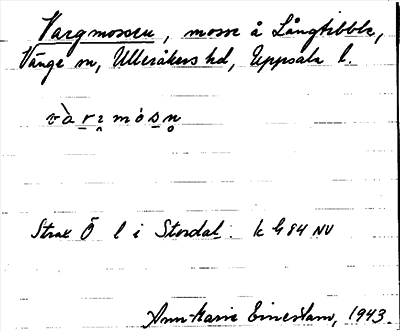 Vargmossen, mosse å Långtibble,
Vänge sn, Ulleråkers hd, Uppsala l.
vàrɿmósn̥
Strax Ö l i Stordal. k G 84 NV
Ann-Marie Einerstam, 1943.